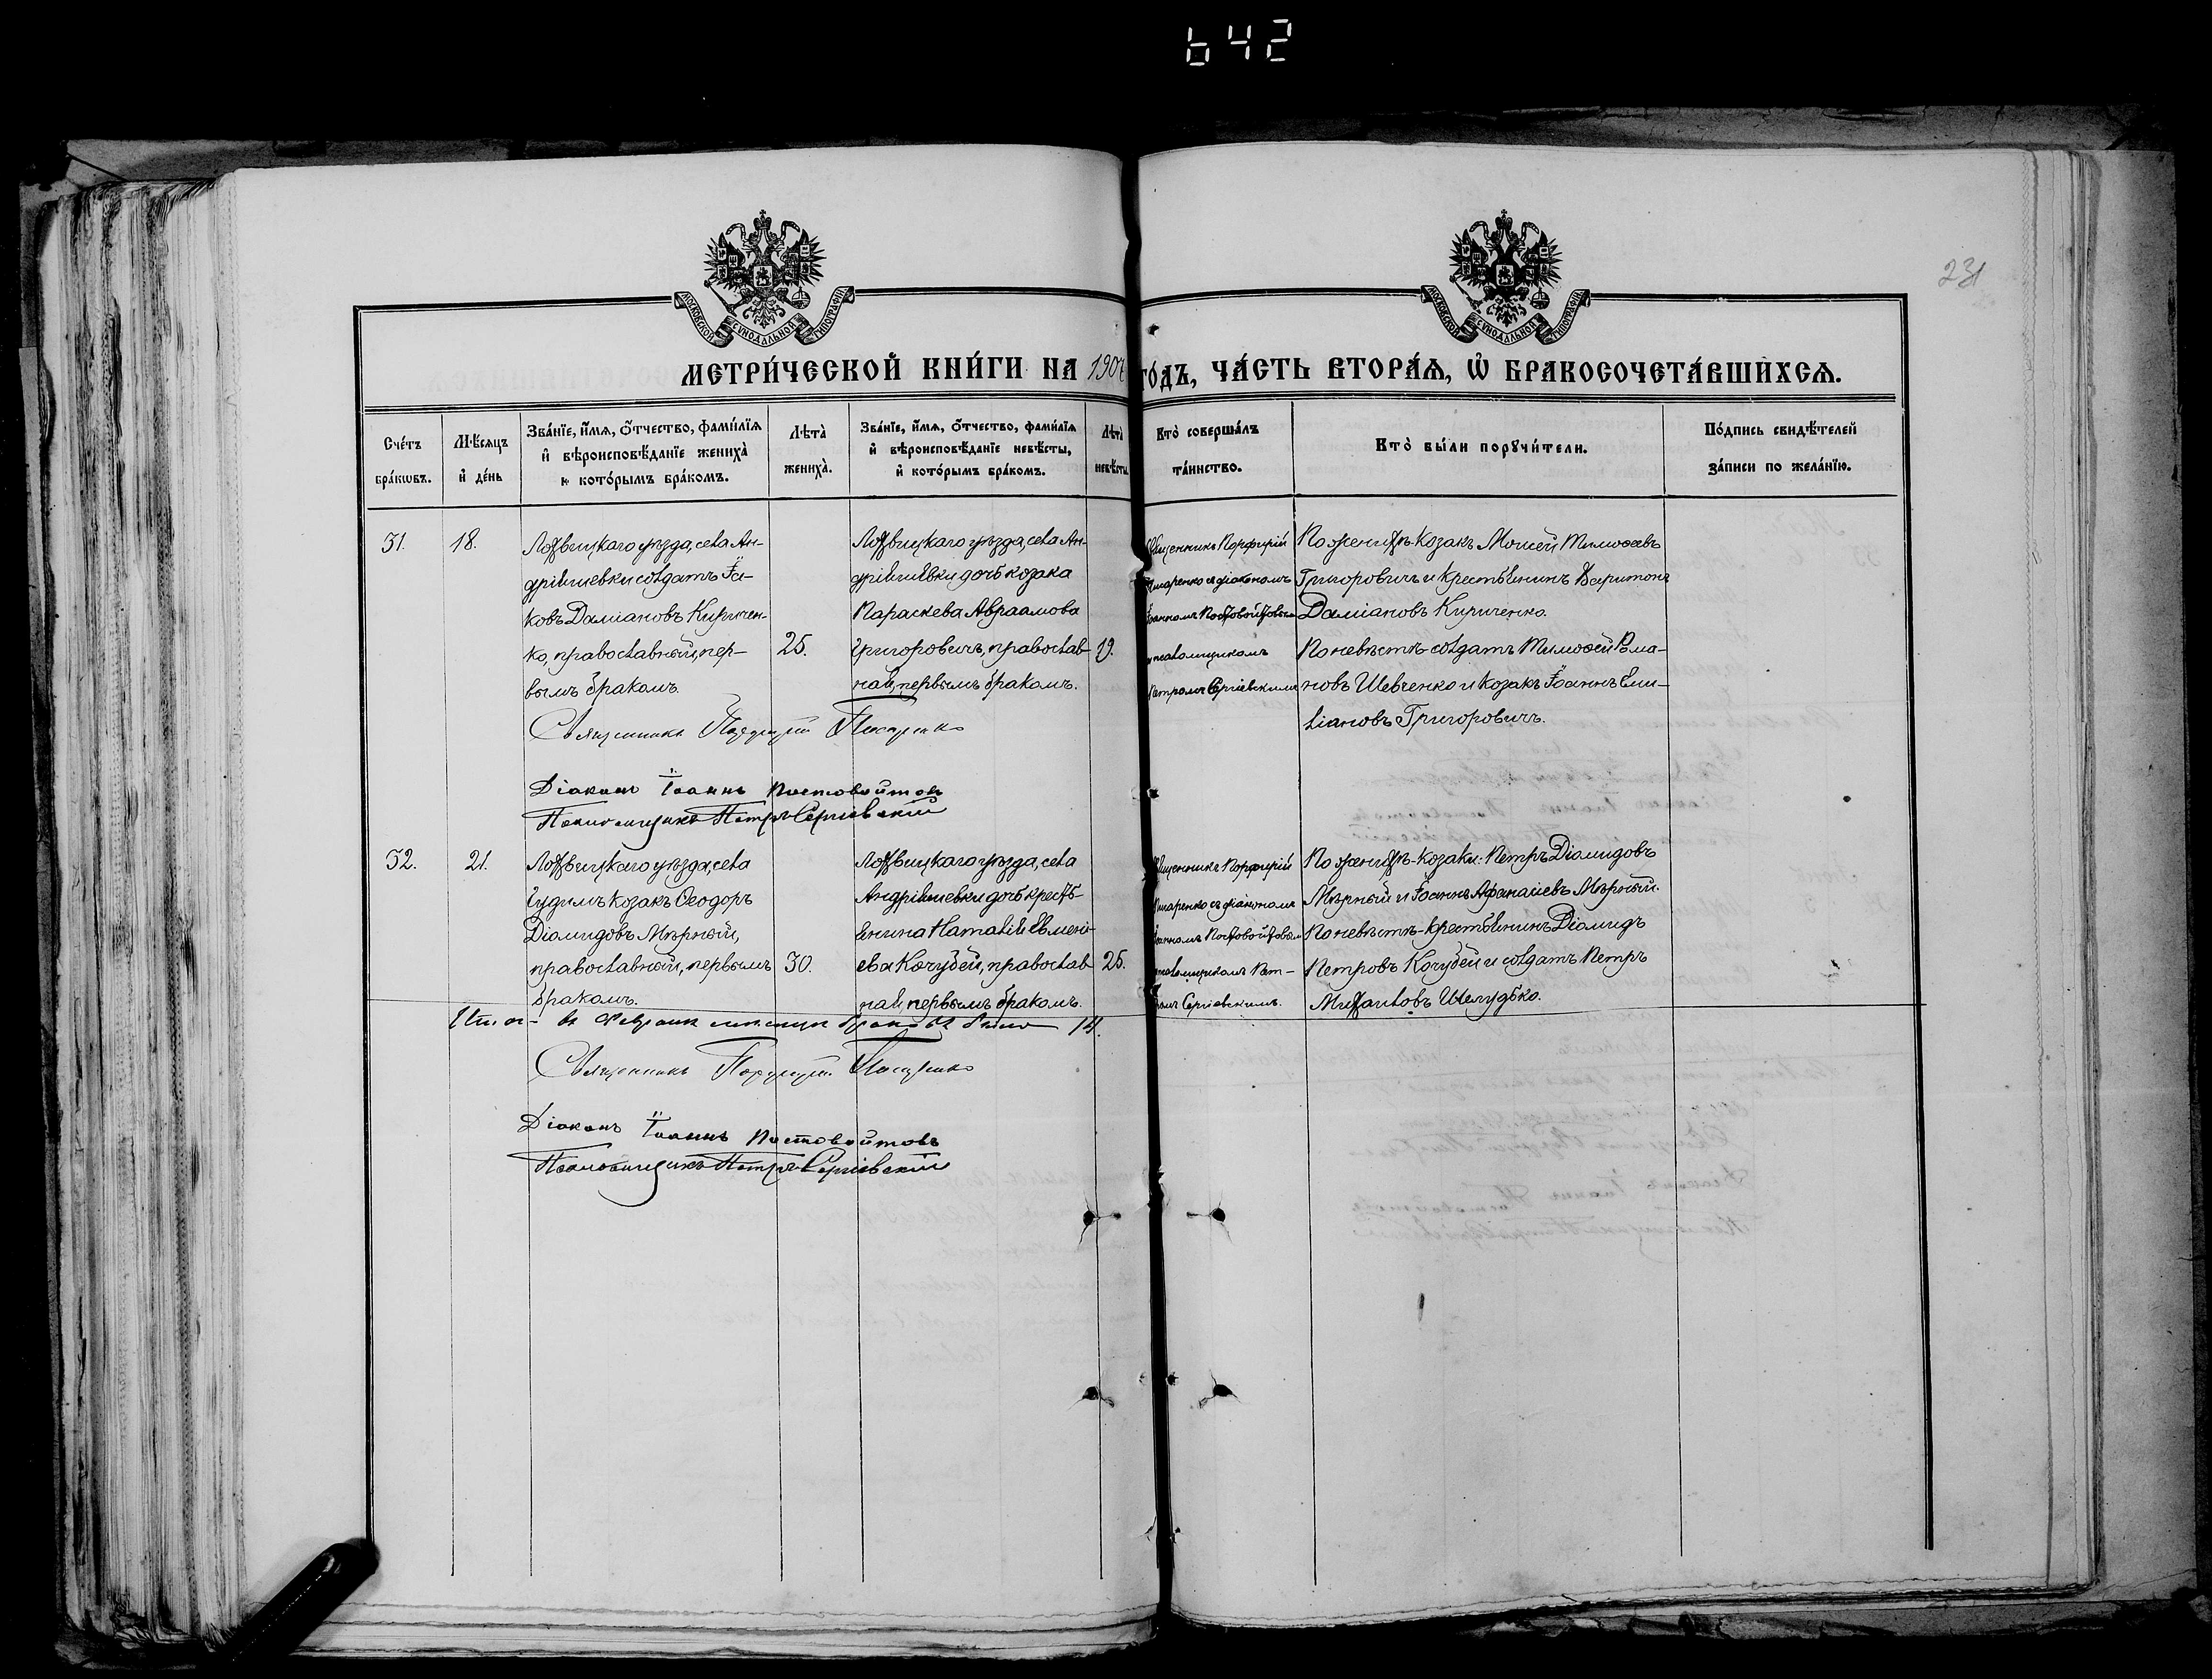 642
231
МОСКОВСКОЙ СУНОДАЛЬНОЙ ТИПОГРАФІИ
МОСКОВСКОЙ СУНОДАЛЬНОЙ ТИПОГРАФІИ
МЕТРИ́ЧЕСКОЙ КНИ́ГИ НА 190 ГО́ДЪ, ЧА́СТЬ ВТОРА́Ѧ, Ѡ҆ БРАКОСОЧЕТА́ВШИХСѦ.
Сче́тъ бра́кѡвъ.
Мѣ́сѧцъ и҆ де́нь
Зва́нїе, и҆́мѧ, ѻ҆́тчество, фами́лїѧ и҆ вѣроисповѣ́данїе жениха̀ и кото́рымъ бра́комъ.
Лѣта̀ жениха̀.
Зва́нїе, и҆́мѧ, ѻ҆́тчество, фами́лїѧ и҆ вѣроисповѣ́данїе невѣ́сты, и҆ кото́рымъ бра́комъ.
Лѣта̀ невѣ́сты
Кто̀ соверша́лъ та́инство.
Кто̀ бы́ли порꙋчи́тели.
По́дпись свидѣ́телей за́писи по жела́нїю.
31.
18.
Лохвицкаго уѣзда, села Ан-
дріяшевки солдатъ Іа-
ковъ Даміановъ Киричен-
ко, православный, пер-
вымъ бракомъ.
25.
Лохвицкаго уѣзда, села Ан-
дріяшевки дочь козака
Параскева Авраамова
Григоровичъ, православ-
ная, первымъ бракомъ.
19.
Священникъ Порфирій
съ діакономъ
Іоанномъ Постовойтовымъ
псаломщикомъ
Петромъ Сергіевскимъ
По женихѣ-козакъ Моисей Тимоѳеевъ
Григоровичъ и крестьянинъ Харитонъ
Даміановъ Кириченко.
По невѣстѣ-солдатъ Тимоѳей Рома-
новъ Шевченко и козакъ Іоаннъ Еми-
ліановъ Григоровичъ.
Священникъ Порфирій
Діаконъ Іоаннъ Постовойтовъ
Псаломщикъ Петръ Сергіевскій
32.
21.
Лохвицкаго уѣзда, села
Чудимъ козакъ Ѳеодоръ
Діомидовъ Мѣрный,
православный, первымъ
бракомъ.
30.
Лохвицкаго уѣзда, села
Андріяшевки дочь кресть-
янина Наталія Евмені-
ева Кочубей, православ-
ная, первымъ бракомъ.
25.
Священникъ Порфирій
съ діакономъ
Іоанномъ Постовойтовымъ
псаломщикомъ Пет-
ромъ Сергіевскимъ.
По женихѣ-козаки: Петръ Діомидовъ
Мѣрный и Іоаннъ Афанасіевъ Мѣрный.
По невѣстѣ-крестьянинъ Діомидъ
Петровъ Кочубей и солдатъ Петръ
Михаиловъ Шелудько.
Итого въ Февралѣ мѣсяцѣ браковъ было 14.
Священникъ Порфирій
Діаконъ Іоаннъ Постовойтовъ
Псаломщикъ Петръ Сергіевскій